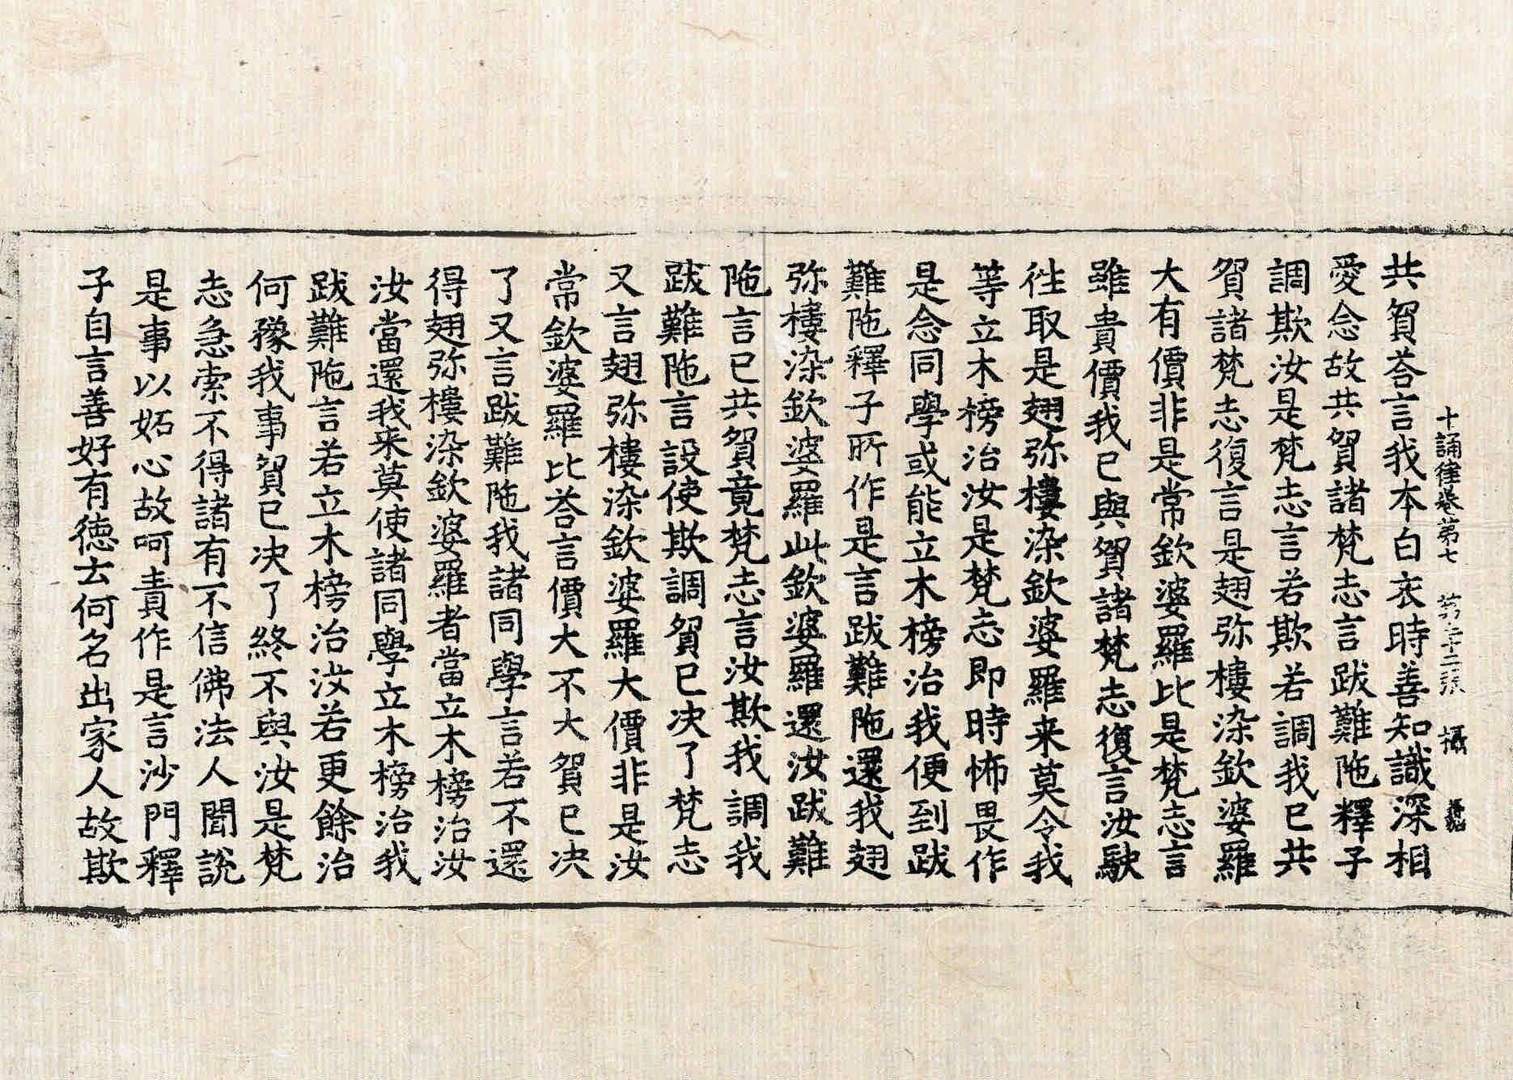 十誦律卷第七 第三十二張 攝
共貿荅言我本白衣時善知識深相
愛念故共貿諸梵志言跋難陁釋子
調欺汝是梵志言若欺若調我已共
貿諸梵志復言是翅弥樓染欽婆羅
大有價非是常欽婆羅比是梵志言
雖貴價我已與貿諸梵志復言汝駃
徃取是翅弥樓染欽婆羅来莫令我
等立木榜治汝是梵志即時怖畏作
是念同學或能立木榜治我便到跋
難陁釋子所作是言跋難陁還我翅
弥樓染欽婆羅此欽婆羅還汝跋難
陁言已共貿竟梵志言汝欺我調我
跋難陁言設使欺調貿已决了梵志
又言翅弥樓染欽婆羅大價非是汝
常欽婆羅比荅言價大不大貿已决
了又言跋難陁我諸同學言若不還
得翅弥樓染欽婆羅者當立木榜治汝
汝當還我来莫使諸同學立木榜治我
跋難陁言若立木榜治汝若更餘治
何豫我事貿已决了終不與汝是梵
志急索不得諸有不信佛法人聞說
是事以妬心故呵責作是言沙門釋
子自言善好有德云何名出家人故欺